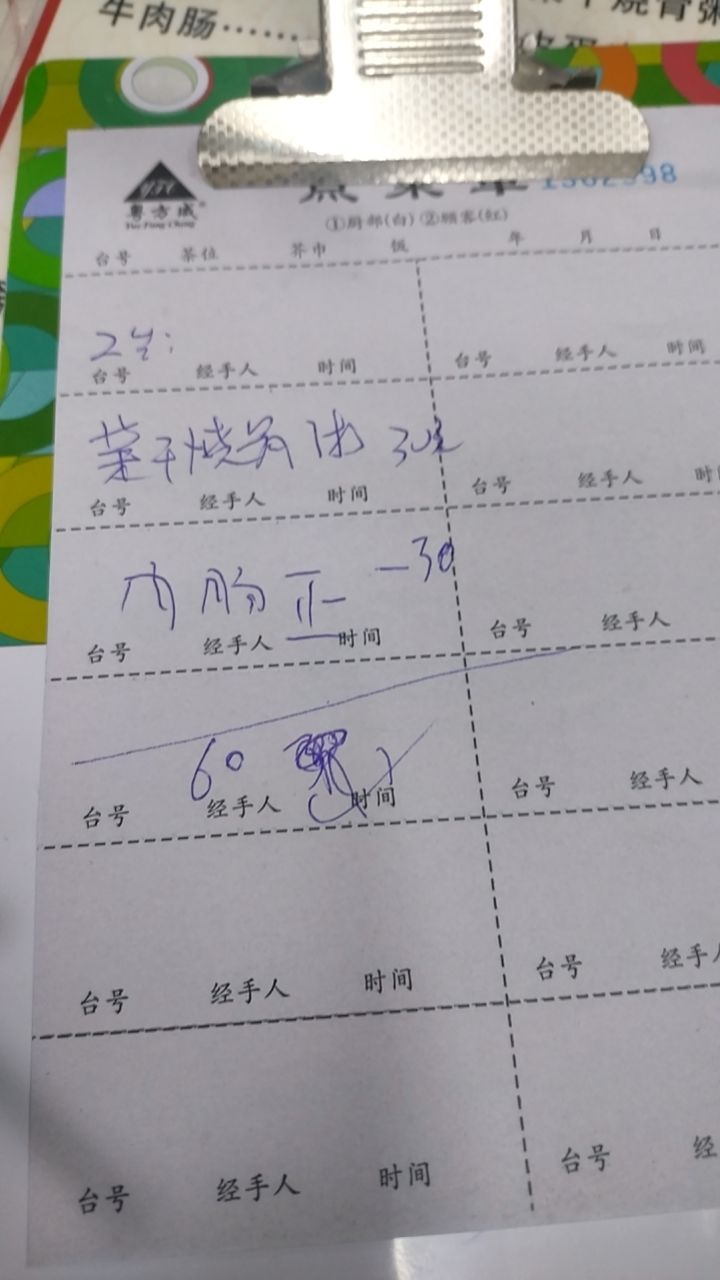 牛肉肠……
点菜单
粤方城
Yue Fang Cheng
①厨部(白) ②顾客(红)
台号 茶位 芥巾 饭 年 月 日
台号 经手人 时间 台号 经手人 时间
菜干烧骨
台号 经手人 时间 台号 经手人 时
肉肠 正 一30
台号 经手人 时间 台号 经手人
60
台号 经手人 时间 台号 经手人
台号 经手人 时间 台号 经手
台号 经手人 时间 台号 经